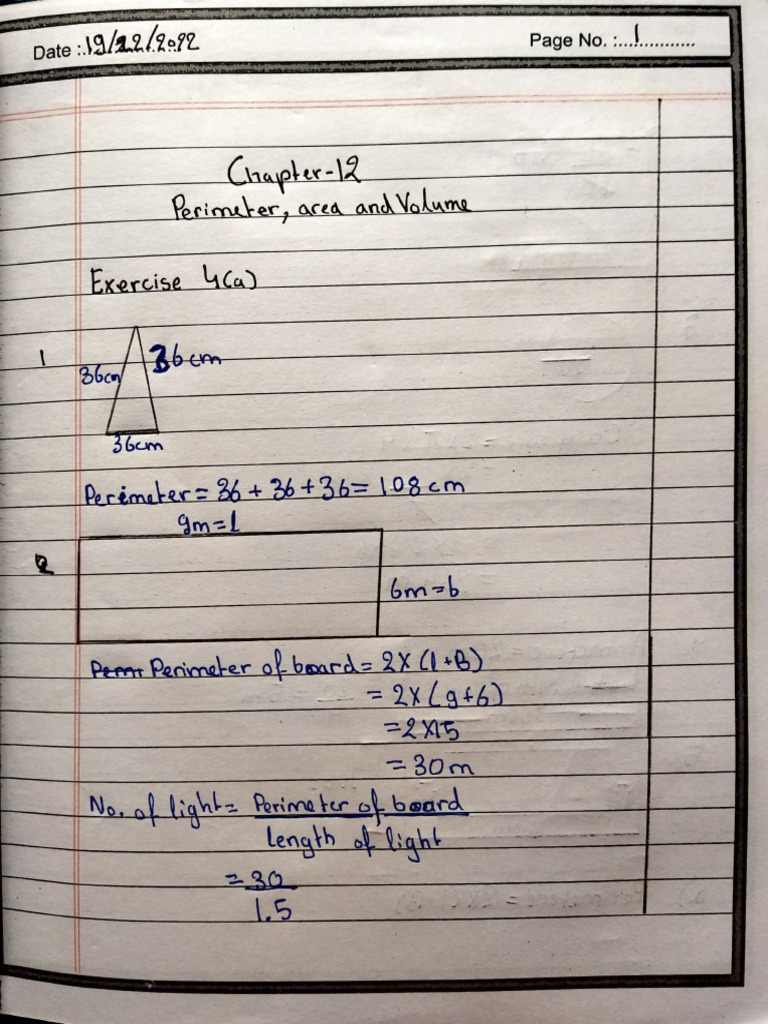 Date :.19/12/2022
Page No. :....1............
Chapter-12
Perimeter, area and Volume
Exercise 4(a)
1
36cm
36cm
36cm
Perimeter = 36 + 36 + 36 = 108 cm
9m = l
2
6m = b
Perimeter of board = 2 × (l + B)
= 2 × (9 + 6)
= 2 × 15
= 30 m
No. of light = Perimeter of board
Length of light
= 30
1.5